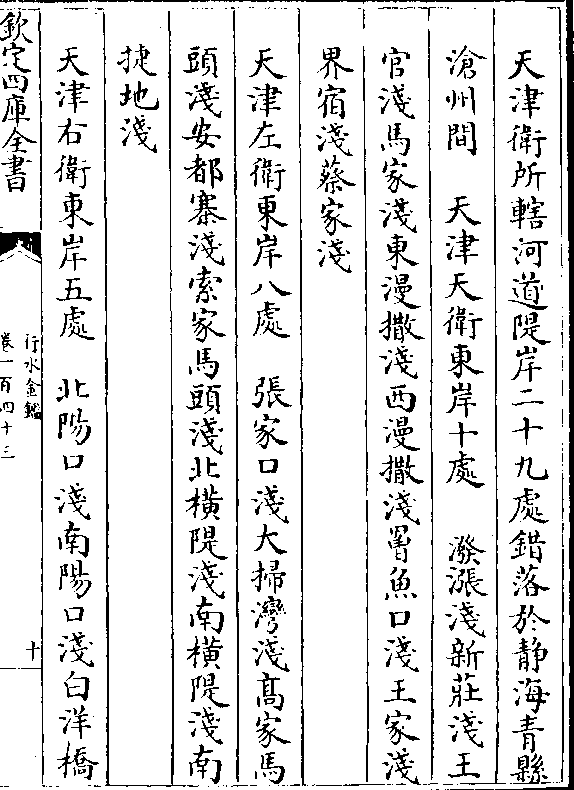 天津衛所轄河道隄岸二十九處錯落於靜海青縣
滄州間　天津天衛東岸十處　潑漲淺新莊淺王
官淺馬家淺東漫撒淺西漫撒淺罾魚口淺王家淺
界宿淺蔡家淺
天津左衛東岸八處　張家口淺大掃灣淺髙家馬
頭淺安都寨淺索家馬頭淺北橫隄淺南橫隄淺南
捷地淺
天津右衛東岸五處　北陽口淺南陽口淺白洋橋
欽定四庫全書
行水金鑑
卷一百四十三
十